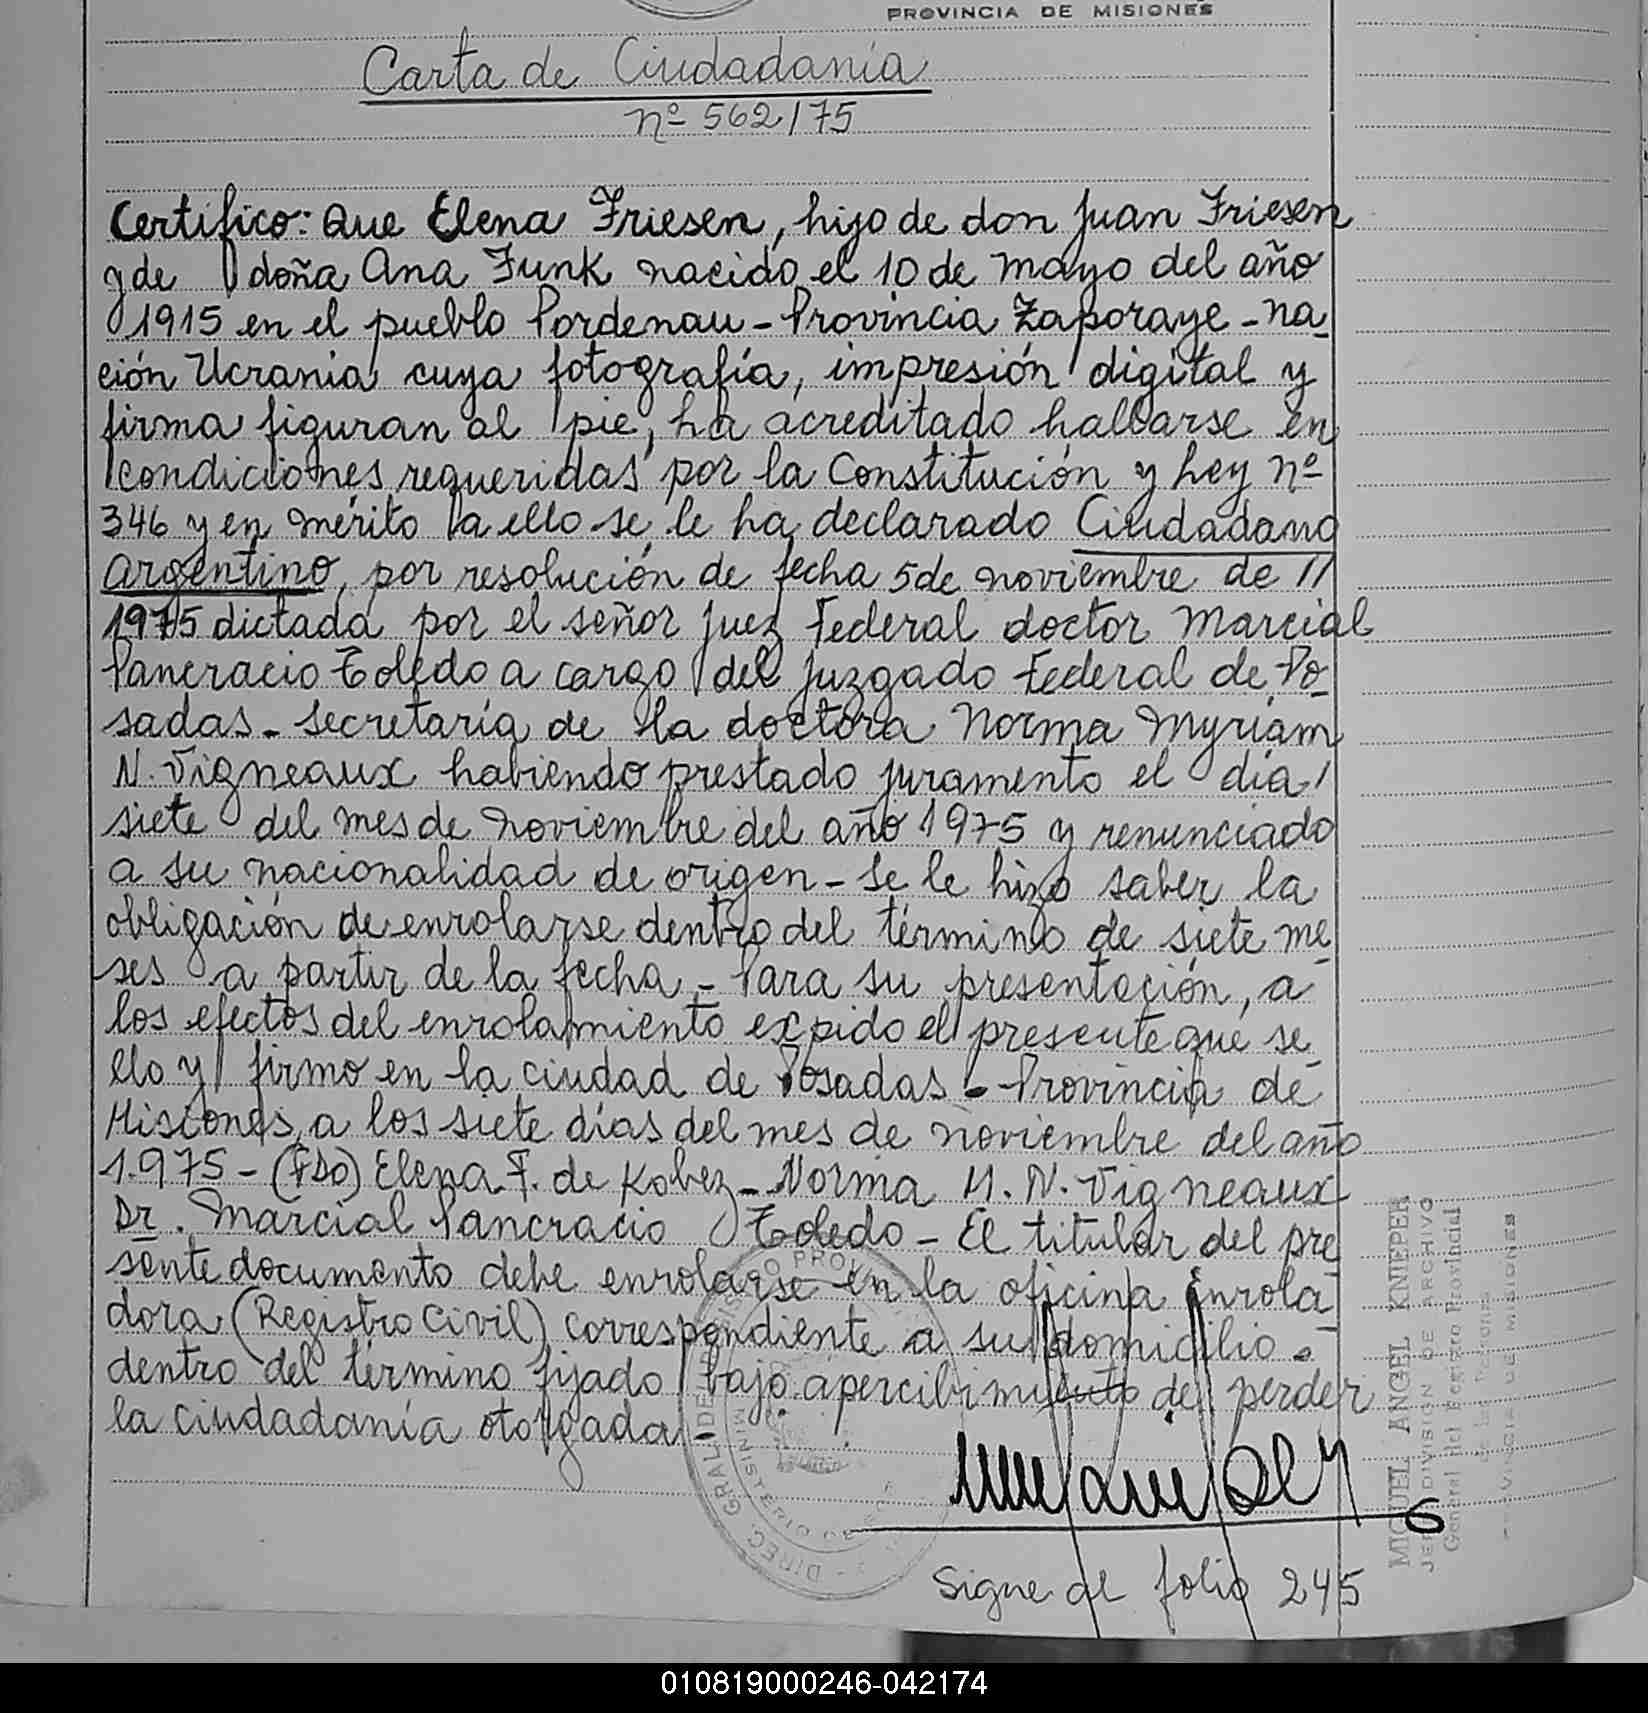 PROVINCIA DE MISIONES
Carta de Ciudadanía
nº 562/75
Certifico: Que Elena Friesen, hijo de don Juan Friesen
y de doña Ana Funk nacido el 10 de mayo del año
1915 en el pueblo Pordenau - Provincia Zaporaye - na
ción Ucrania cuya fotografía, impresión digital y
firma figuran al pie, ha acreditado hallarse en
condiciones requeridas por la Constitución y Ley nº
346 y en mérito a ello se le ha declarado Ciudadano
Argentino, por resolución de fecha 5 de noviembre de //
1975 dictada por el señor Juez Federal doctor Marcial
Pancracio Toledo a cargo del Juzgado Federal de Po
sadas - Secretaría de la doctora Norma Myriam
N. Vigneaux habiendo prestado juramento el día /
siete del mes de noviembre del año 1975 y renunciado
a su nacionalidad de origen - Se le hizo saber la
obligación de enrolarse dentro del término de siete me
ses a partir de la fecha - Para su presentación, a
los efectos del enrolamiento expido el presente que se
llo y firmo en la ciudad de Posadas - Provincia de
Misiones, a los siete días del mes de noviembre del año
1.975 - (FDo) Elena F. de Kobez - Norma M. N. Vigneaux
Dr. Marcial Pancracio Toledo - El titular del pre
sente documento debe enrolarse en la oficina enrola
dora (Registro Civil) correspondiente a su domicilio -
dentro del término fijado bajo apercibimiento de perder
la ciudadanía otorgada -
Sigue al folio 245
MIGUEL ANGEL KNEPER
JEFE DIVISION DE ARCHIVO
General del Registro Provincial
de las Personas
PROVINCIA DE MISIONES
010819000246-042174